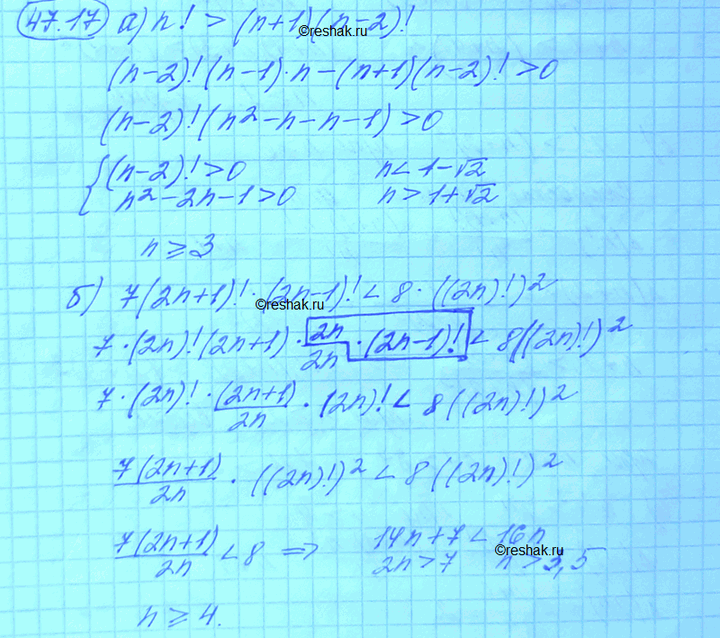 47.17 а) n! > (n+1)(n-2)!
©reshak.ru
(n-2)!(n-1)·n-(n+1)(n-2)! >0
(n-2)!(n²-n-n-1)>0
{(n-2)!>0 n<1-√2
n²-2n-1>0 n>1+√2
n≥3
б) 7(2n+1)!·(2n-1)! < 8·((2n)!)²
©reshak.ru
7·(2n)!(2n+1)·2n/2n·(2n-1)! < 8((2n)!)²
7·(2n)!·(2n+1)/2n·(2n)! < 8((2n)!)²
7(2n+1)/2n·((2n)!)² < 8((2n)!)²
7(2n+1)/2n <8 => 14n+7<16n
2n>7 n>3,5
©reshak.ru
n≥4.